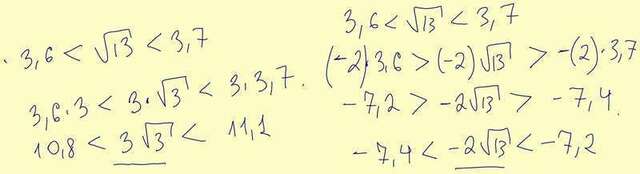 3,6 < √13 < 3,7
3,6·3 < 3·√3 < 3·3,7.
10,8 < 3√3 < 11,1
3,6 < √13 < 3,7
(-2)·3,6 > (-2)√13 > -(2)·3,7
-7,2 > -2√13 > -7,4.
-7,4 < -2√13 < -7,2